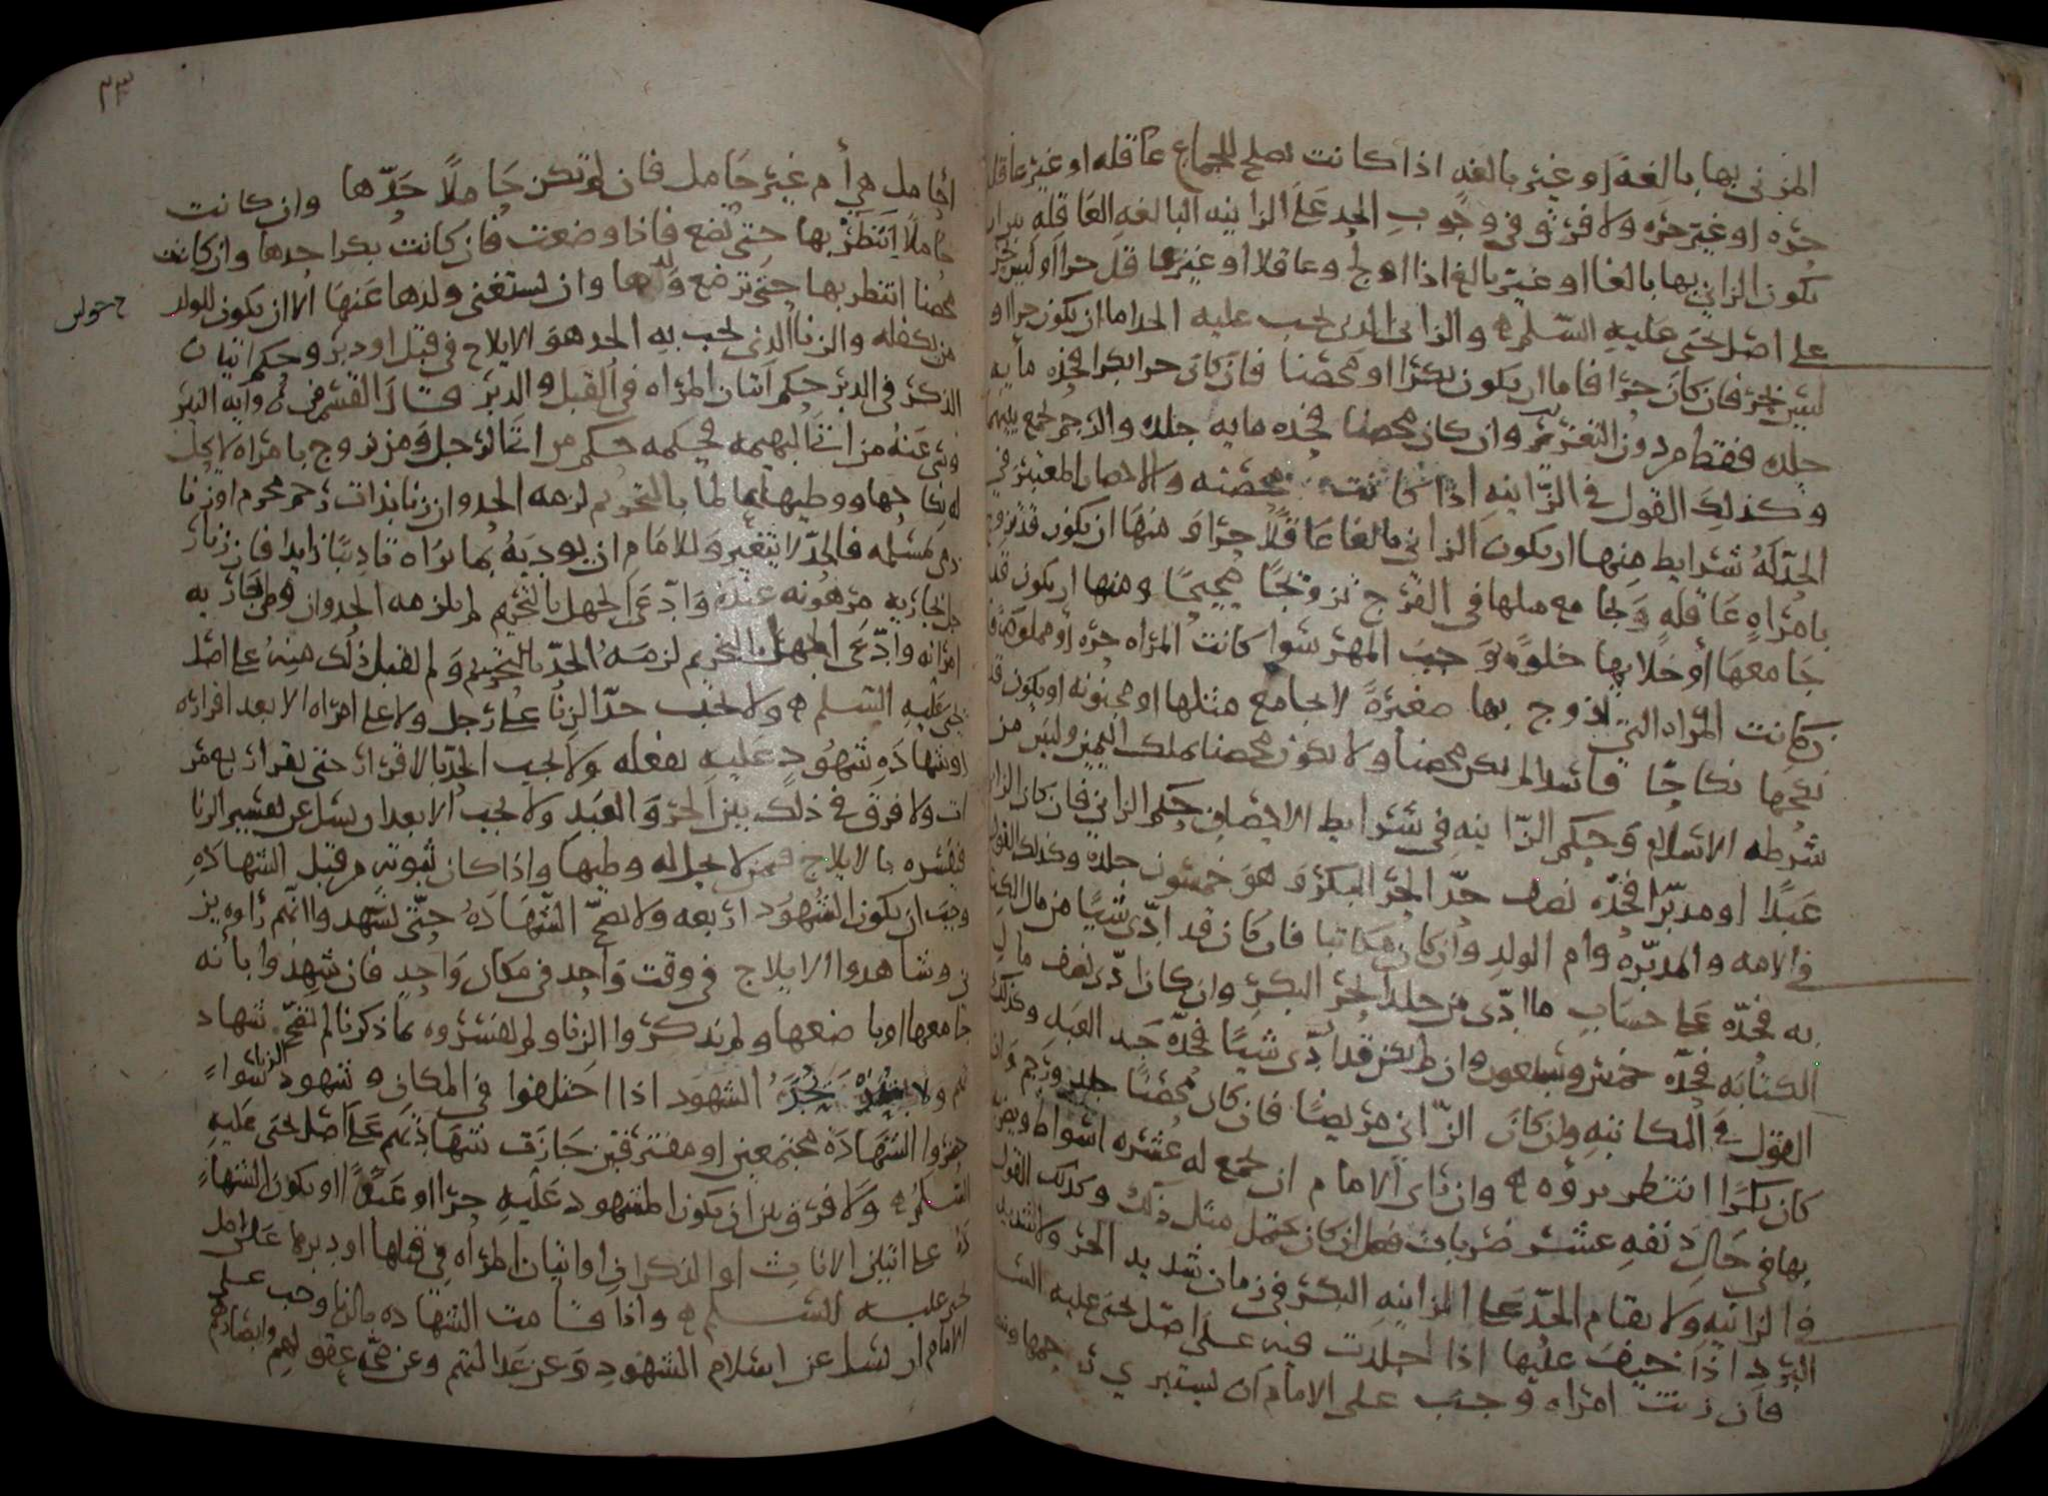 المزني بها بالغة او غير بالغه اذا كانت تصلح للجماع عاقله او غير عاقله
حره او غير حره ولا فرق في وجوب الحد على الزانيه البالغه العاقله بين ان
يكون الزاني بها بالغا او غير بالغ اذا اولج وعاقلا او غير عاقل حرا او ليس بحر
على اصل يحيى عليه السلم والزاني الذي يجب عليه الحد اما ان يكون حرا او
ليس بحر فان كان حرا فاما ان يكون بكرا او محصنا فان كان حرا بكرا فحده مايه
جلده فقط من دون التغريب وان كان محصنا فحده مايه جلده والرجم يجمع بينهما
وكذلك القول في الزانيه اذا كانت محصنه والاحصان المعتبر في
الحد له شرايط منها ان يكون الزاني بالغا عاقلا حرا ومنها ان يكون قد تزوج
بامراه عاقله يجامع مثلها في الفرج تزوجا صحيحا ومنها ان يكون قد
جامعها او خلا بها خلوه توجب المهر سوا كانت المراه حره او مملوكه فان
كانت المراه التي تزوج بها صغيرة لا يجامع مثلها او مجنونه او يكون قد
نكحها نكاحا فاسدا لم يكن محصنا ولا يكون محصنا بملك اليمين وليس من
شرطه الاسلام وحكم الزانيه في شرايط الاحصان حكم الزاني فان كان الزاني
عبدا او مدبرا فحده نصف حد الحر البكر وهو خمسون جلده وكذلك القول
في الامه والمدبره وام الولد وان كان مكاتبا فان كان قد ادى شيئا من مال الكتابه
به فحده على حساب ما ادى من جلد الحر البكر وان كان ادى نصف مال
الكتابه فحده خمس وسبعون وان لم يكن قد ادى شيئا فحده حد العبد وكذلك
القول في المكاتبه وان كان الزاني مريضا فان كان محصنا جلد ورجم وان
كان بكرا انتظر بروه وان راى الامام ان يجمع له عشره اسواط ويضربه
بها في حال دنفه عشر ضربات فعل ان كان يحتمل مثل ذلك وكذلك القول
في الزانيه ولا يقام الحد على الزانيه البكر في زمان شديد الحر ولا شديد
البرد اذا خيف عليها اذا جلدت فيه على اصل يحيى عليه السلم
فان زنت امراه وجب على الامام ان يستبري رحمها
٢٣
احامل هي أم غير حامل فان لم تكن حاملا حدها وان كانت
حاملا انتظر بها حتى تضع فاذا وضعت فان كانت بكرا حدها وان كانت
محصنا انتظر بها حتى ترضع ولدها وان يستغني ولدها عنها الا ان يكون للولد
من يكفله والزنا الذي يجب به الحد هو الايلاج في قبل او دبر وحكم اتيان
الذكر في الدبر حكم اتيان المراه في القبل والدبر
عنه من اتا البهيمه فحكمه حكم من اتا الرجل ومن تزوج بامراه لا يحل
له نكاحها ووطيها عالما بالتحريم لزمه الحد وان زنا بذات رحم محرم او زنا
فالحد لا يتغير وللامام ان يوديه بما يراه تاديبا زايدا فان زنا
بجاريه مرهونه عنده وادعى الجهل بالتحريم لم يلزمه الحد وان وطي جاريه
امراته وادعى الجهل بالتحريم لزمه الحد ولم يقبل ذلك منه على اصل
يحيى عليه السلم ولا يجب حد الزنا على رجل ولا على امراه الا بعد اقراره
او شهادة شهود عليه بفعله ولا يجب الحد بالاقرار حتى يقر اربع مر
ات ولا فرق في ذلك بين الحر والعبد ولا يجب الا بعد ان يسل عن تفسير الزنا
فيفسره بالايلاج فيمن لا يحل له وطيها واذا كان ثبوته من قبل الشهادة
وجب ان يكون الشهود اربعه ولا تصح الشهادة حتى يشهدوا انهم راوه يز
ني وشاهدوا الايلاج في وقت واحد في مكان واحد فان شهدوا بانه
جامعها او باضعها ولم يذكروا الزنا ولم يفسروه بما ذكرنا لم تصح شهاد
تهم ولا يحد الشهود اذا اختلفوا في المكان وشهود الزنا سواء
حضروا الشهادة مجتمعين او مفترقين جازت شهاذتهم على اصل يحيى عليه
السلم ولا فرق بين ان يكون المشهود عليه حرا او عبدا او يكون الشها
دة على اتيان الاناث او الذكران او اتيان المراه في قبلها او دبرها على اصل
يحيى عليه السلم واذا قامت الشهاده بالزنا وجب على
الامام ان يسل عن اسلام الشهود وعن عدالتهم وعن صحة عقولهم وابصارهم